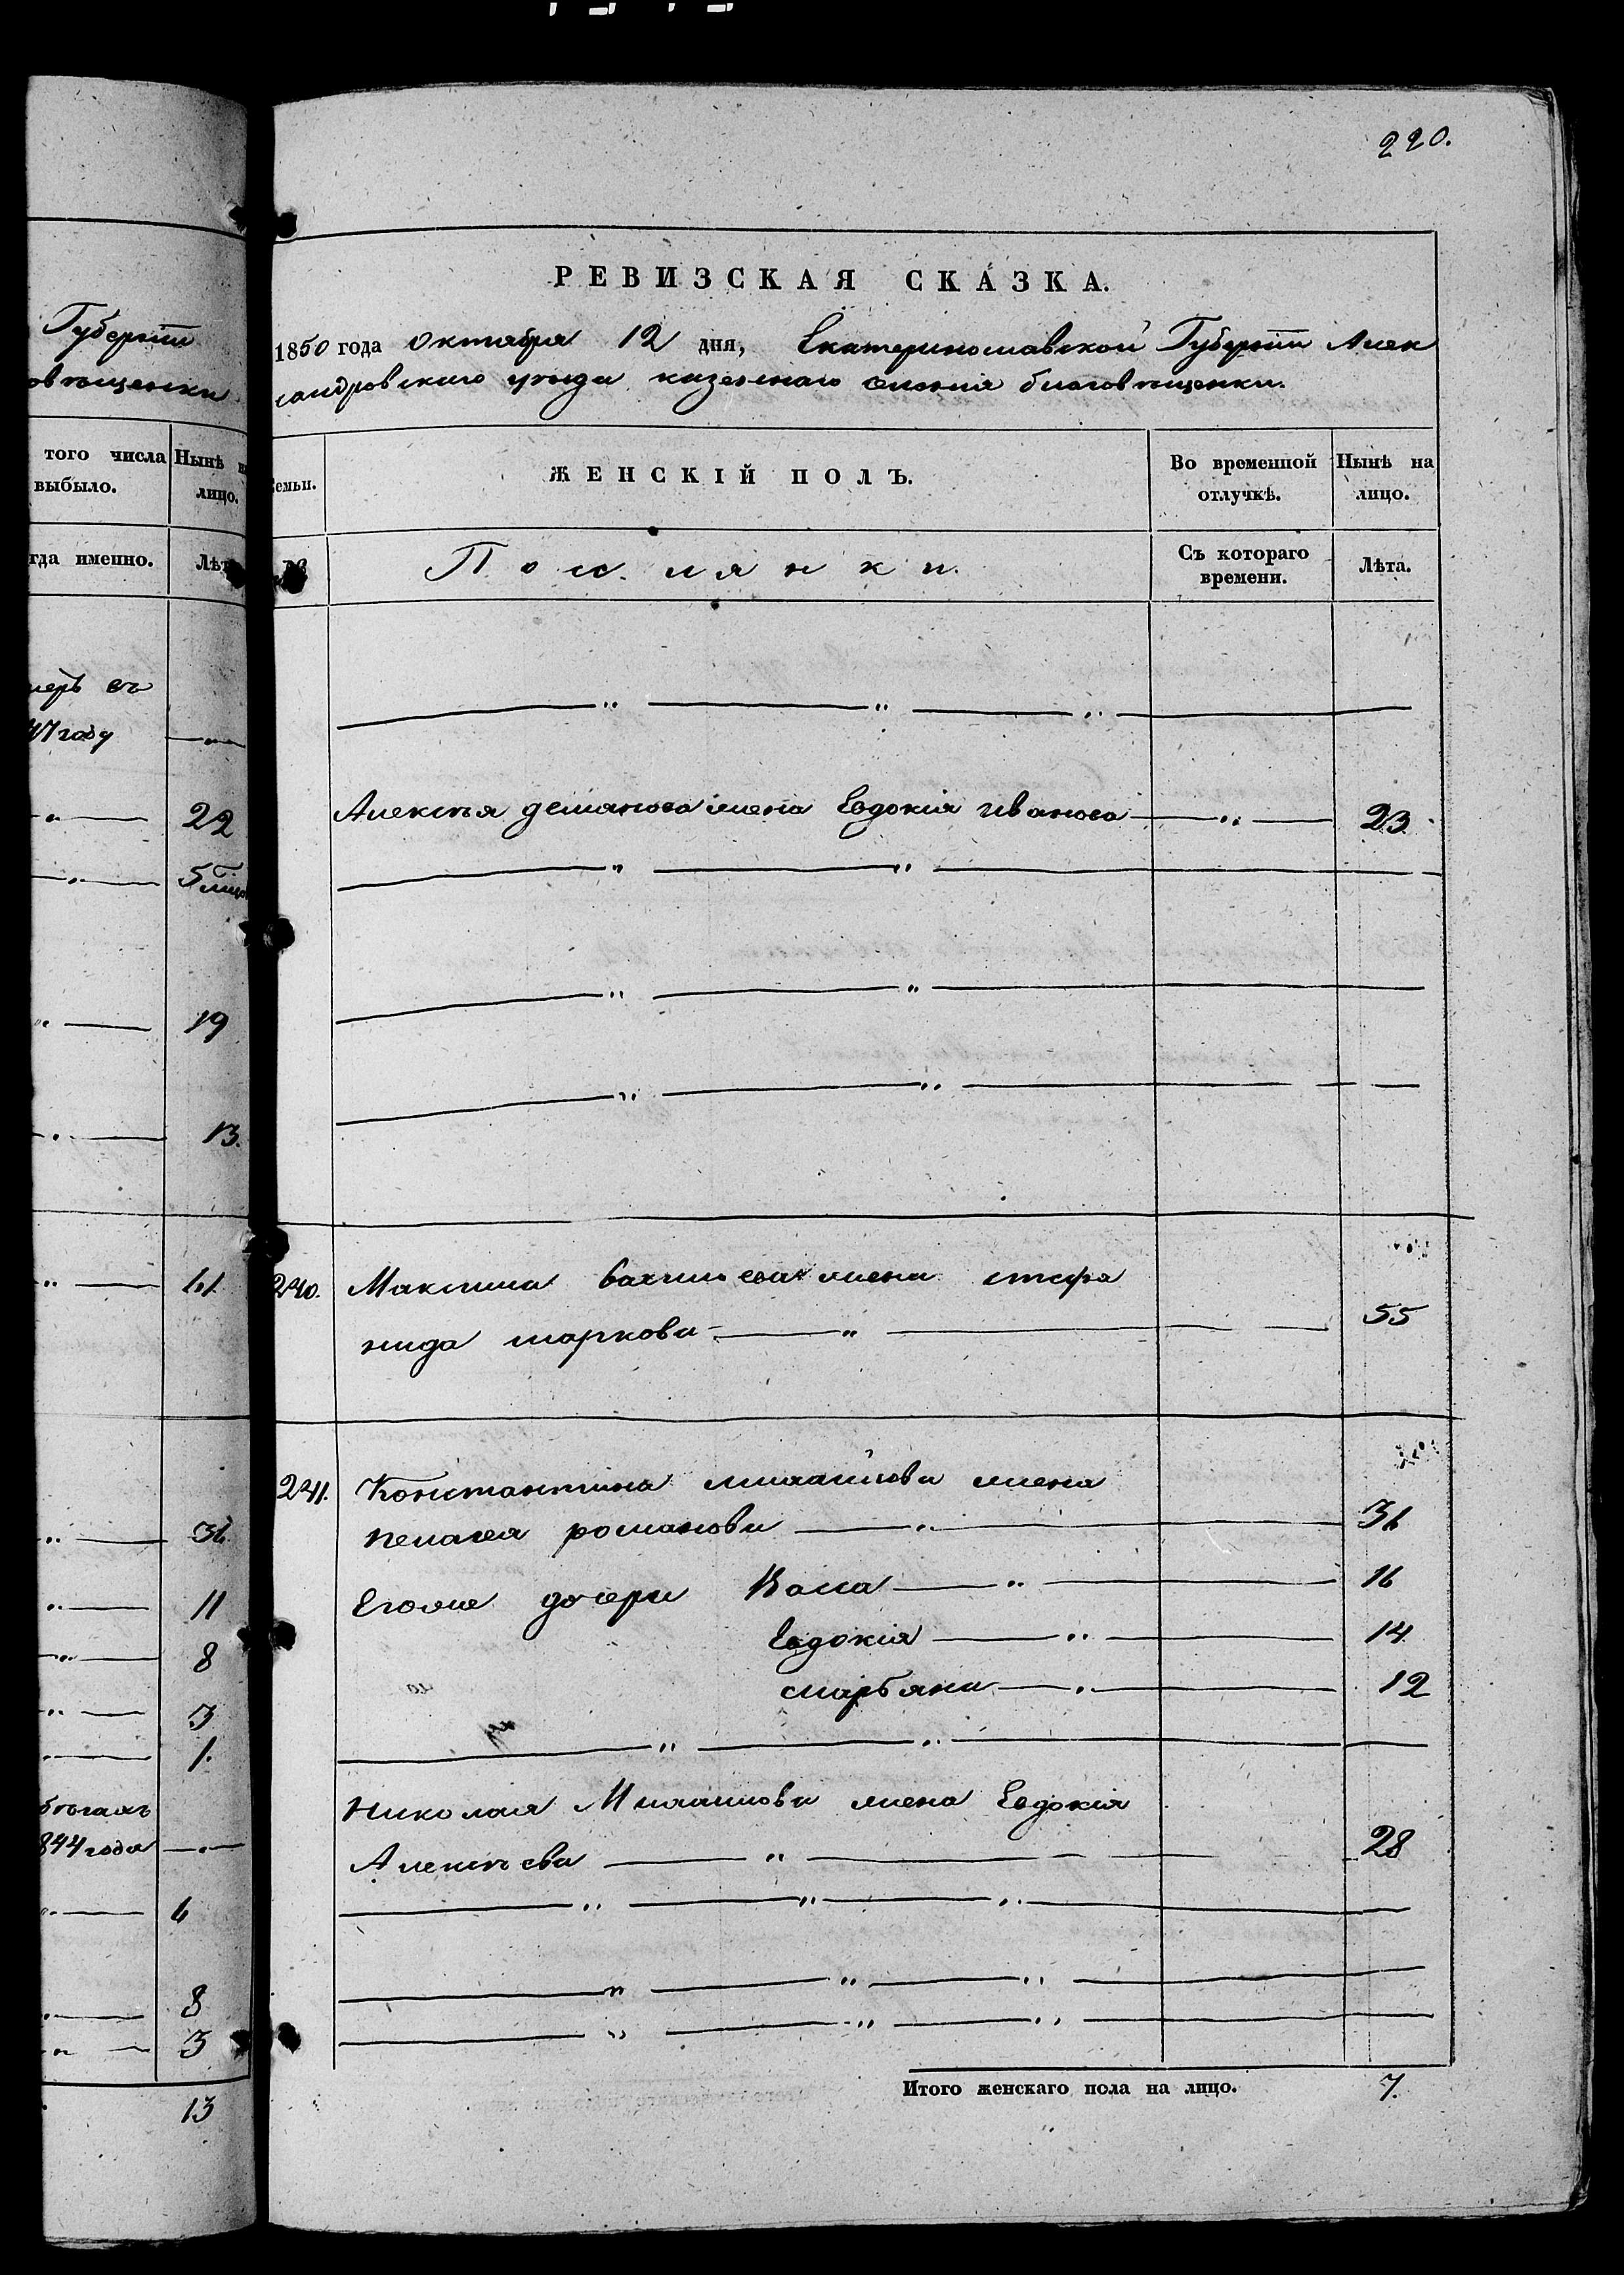 220.
Губерніи
овѣщенки
того числа
выбыло.
Нынѣ на
лицо.
гда именно.
Лѣт
47 году
22
5 мѣсо
19
13.
61
36.
11
8
3
1.
844 года
6
8
3
13
РЕВИЗСКАЯ СКАЗКА.
1850 года Октября 12 дня, Екатеринославской Губерніи Алек
сандровскаго уѣзда казеннаго селенія благовѣщенки.
Семьи.
ЖЕНСКІЙ ПОЛЪ.
Во временной
отлучкѣ.
Нынѣ на
лицо.
Поселянки.
Съ котораго
времени.
Лѣта.
Алексѣя демянова жена Евдокія иванова — „ — 23.
240. Максима жена стефа
нида маркова — „ — 55
241. Константина михайлова жена
пелагея романова — „ — 36
Егоже дочери Васса — „ — 16
Евдокія — „ — 14
марьяна — „ — 12
Николая Михайлова жена Евдокія
Алексѣева — „ — 28
Итого женскаго пола на лицо. 7.